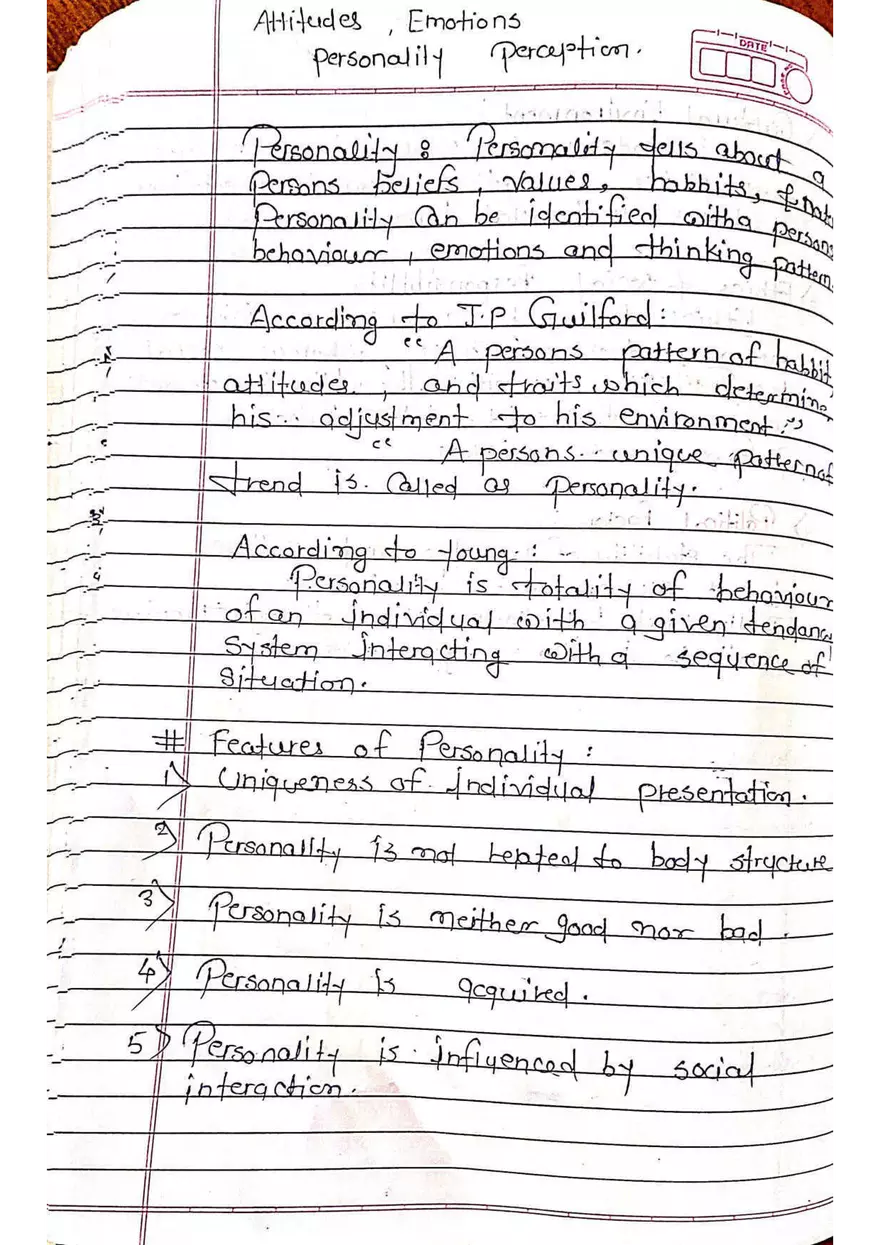 Attitudes, Emotions
Personality Perception.
DATE
Personality : Personality tells about a
Persons beliefs, values, habbits,
Personality Can be identified with a persons
behaviour, emotions and thinking pattern.
According to J.P Guilford:
" A persons pattern of habbit,
attitudes, and traits which determine
his adjustment to his environment."
" A persons unique pattern of
trend is Called as Personality.
According to young :
Personality is totality of behaviour
of an individual with a given tendancy
System interacting with a sequence of
Situation.
# Features of Personality :
1) Uniqueness of individual presentation.
2) Personality is not related to body structure
3) Personality is neither good nor bad.
4) Personality is acquired.
5) Personality is influenced by social
interaction.